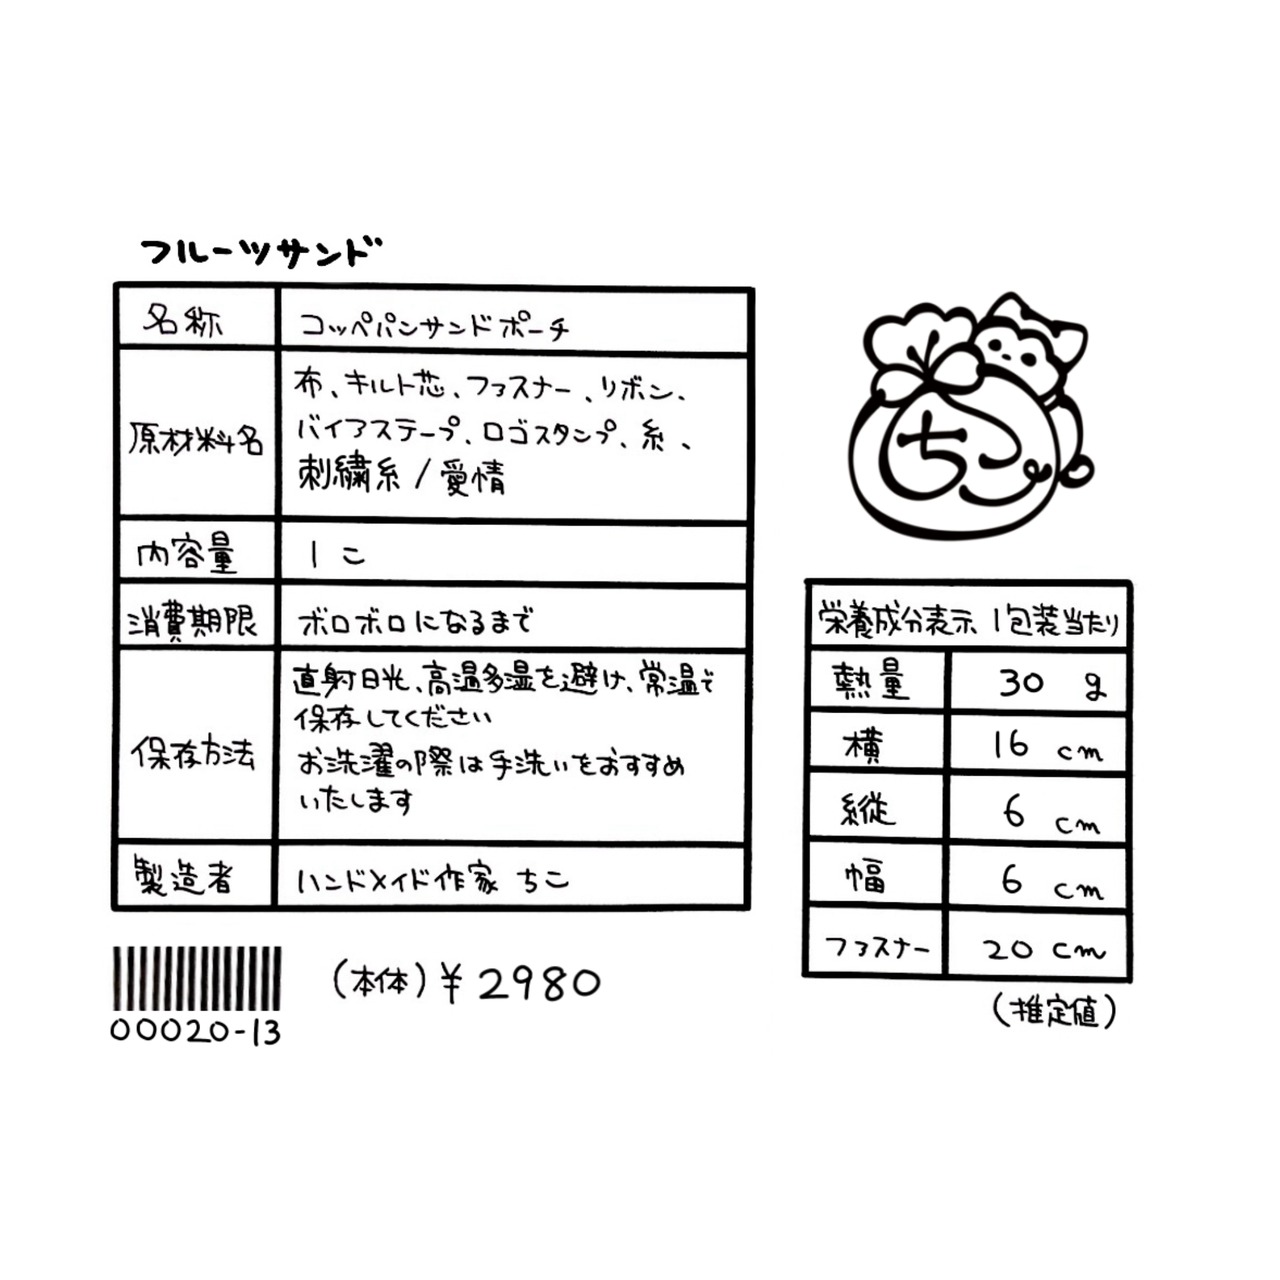 フルーツサンド
名称 コッペパンサンドポーチ
原材料名 布、キルト芯、ファスナー、リボン、
バイアステープ、ロゴスタンプ、糸、
刺繍糸/愛情
内容量 1こ
消費期限 ボロボロになるまで
保存方法 直射日光、高温多湿を避け、常温で
保存してください
お洗濯の際は手洗いをおすすめ
いたします
製造者 ハンドメイド作家 ちこ
00020-13
(本体)¥2980
ちこ。
栄養成分表示 1包装当たり
熱量 30 g
横 16 cm
縦 6 cm
幅 6 cm
ファスナー 20 cm
(推定値)